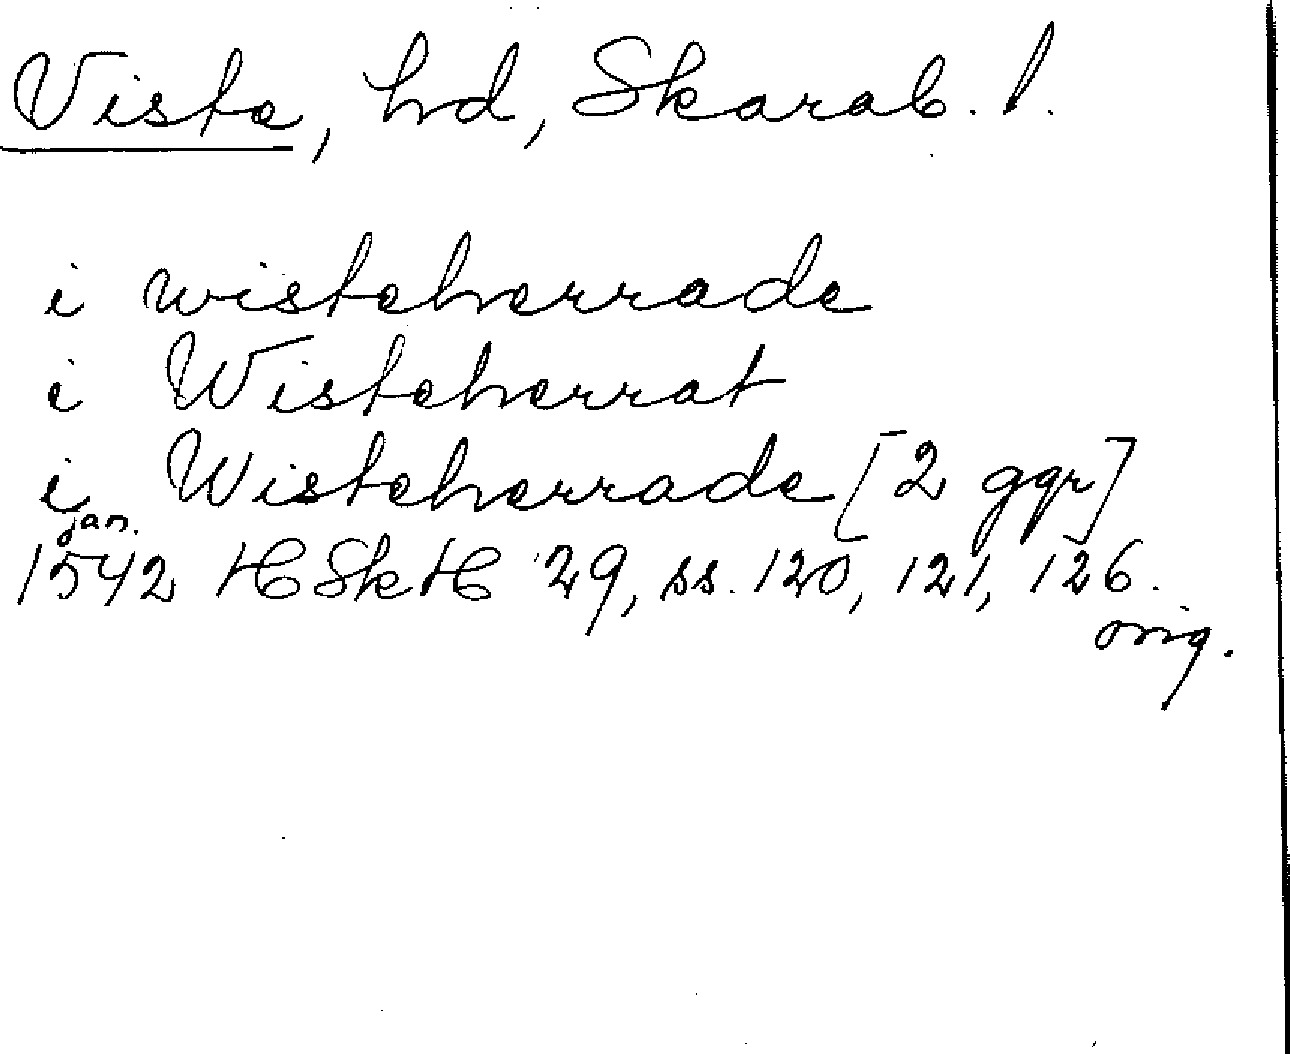 Viste, hd, Skarab. l.
i wisteherrade
i Wisteherrat
i Wisteherrade [2 ggr]
jan.
1542 HSkH 29, ss. 120, 121, 126.
orig.